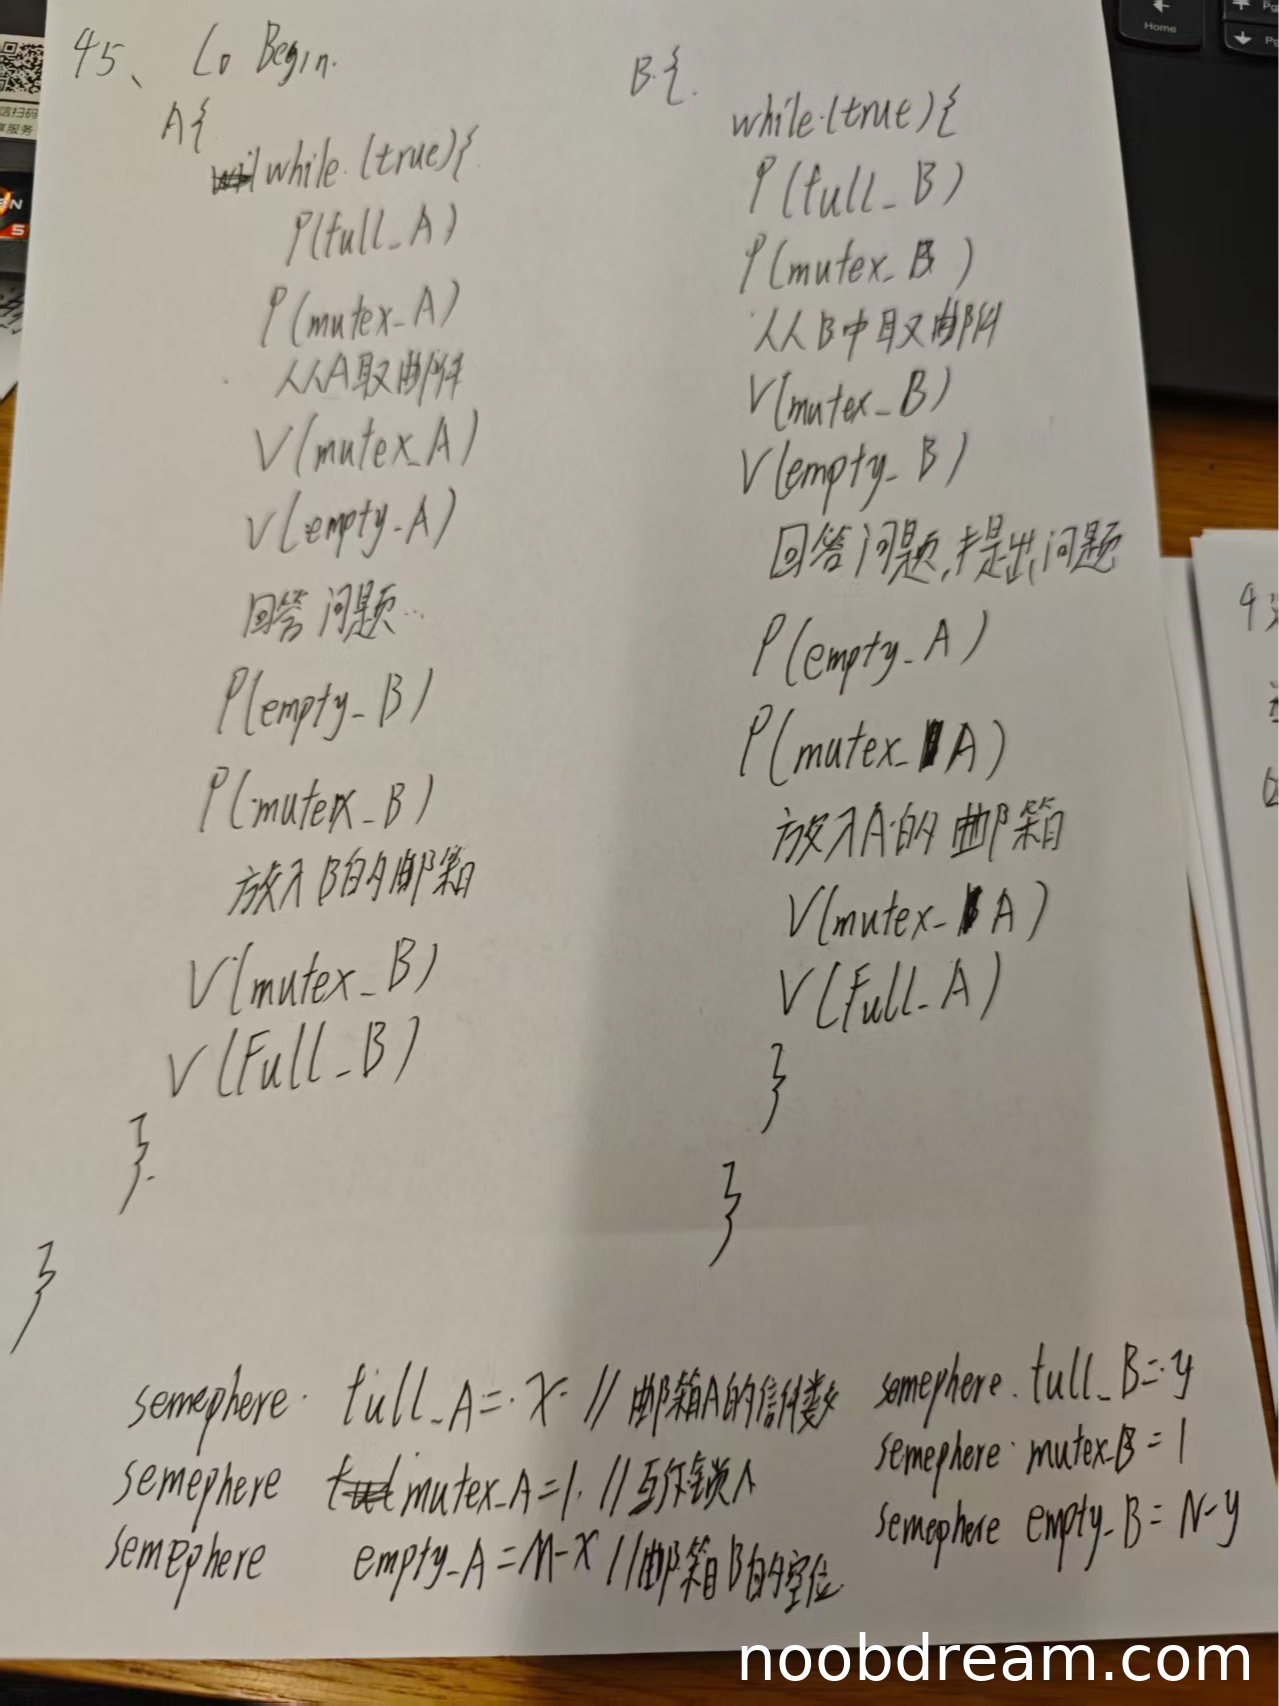 45、 Co Begin.
A{
while (true){
P(full_A)
P(mutex_A)
从A取邮件
V(mutex_A)
V(empty_A)
回答问题..
P(empty_B)
P(mutex_B)
放入B的邮箱
V(mutex_B)
V(Full_B)
}
}
B{
while (true){
P(full_B)
P(mutex_B)
从B中取邮件
V(mutex_B)
V(empty_B)
回答问题,提出问题
P(empty_A)
P(mutex_A)
放入A的邮箱
V(mutex_A)
V(Full_A)
}
}
semephere full_A = x // 邮箱A的信件数
semephere mutex_A = 1. // 互斥锁A
semephere empty_A = M-x // 邮箱B的空位
semephere full_B = y
semephere mutex_B = 1
semephere empty_B = N-y
Home
noobdream.com